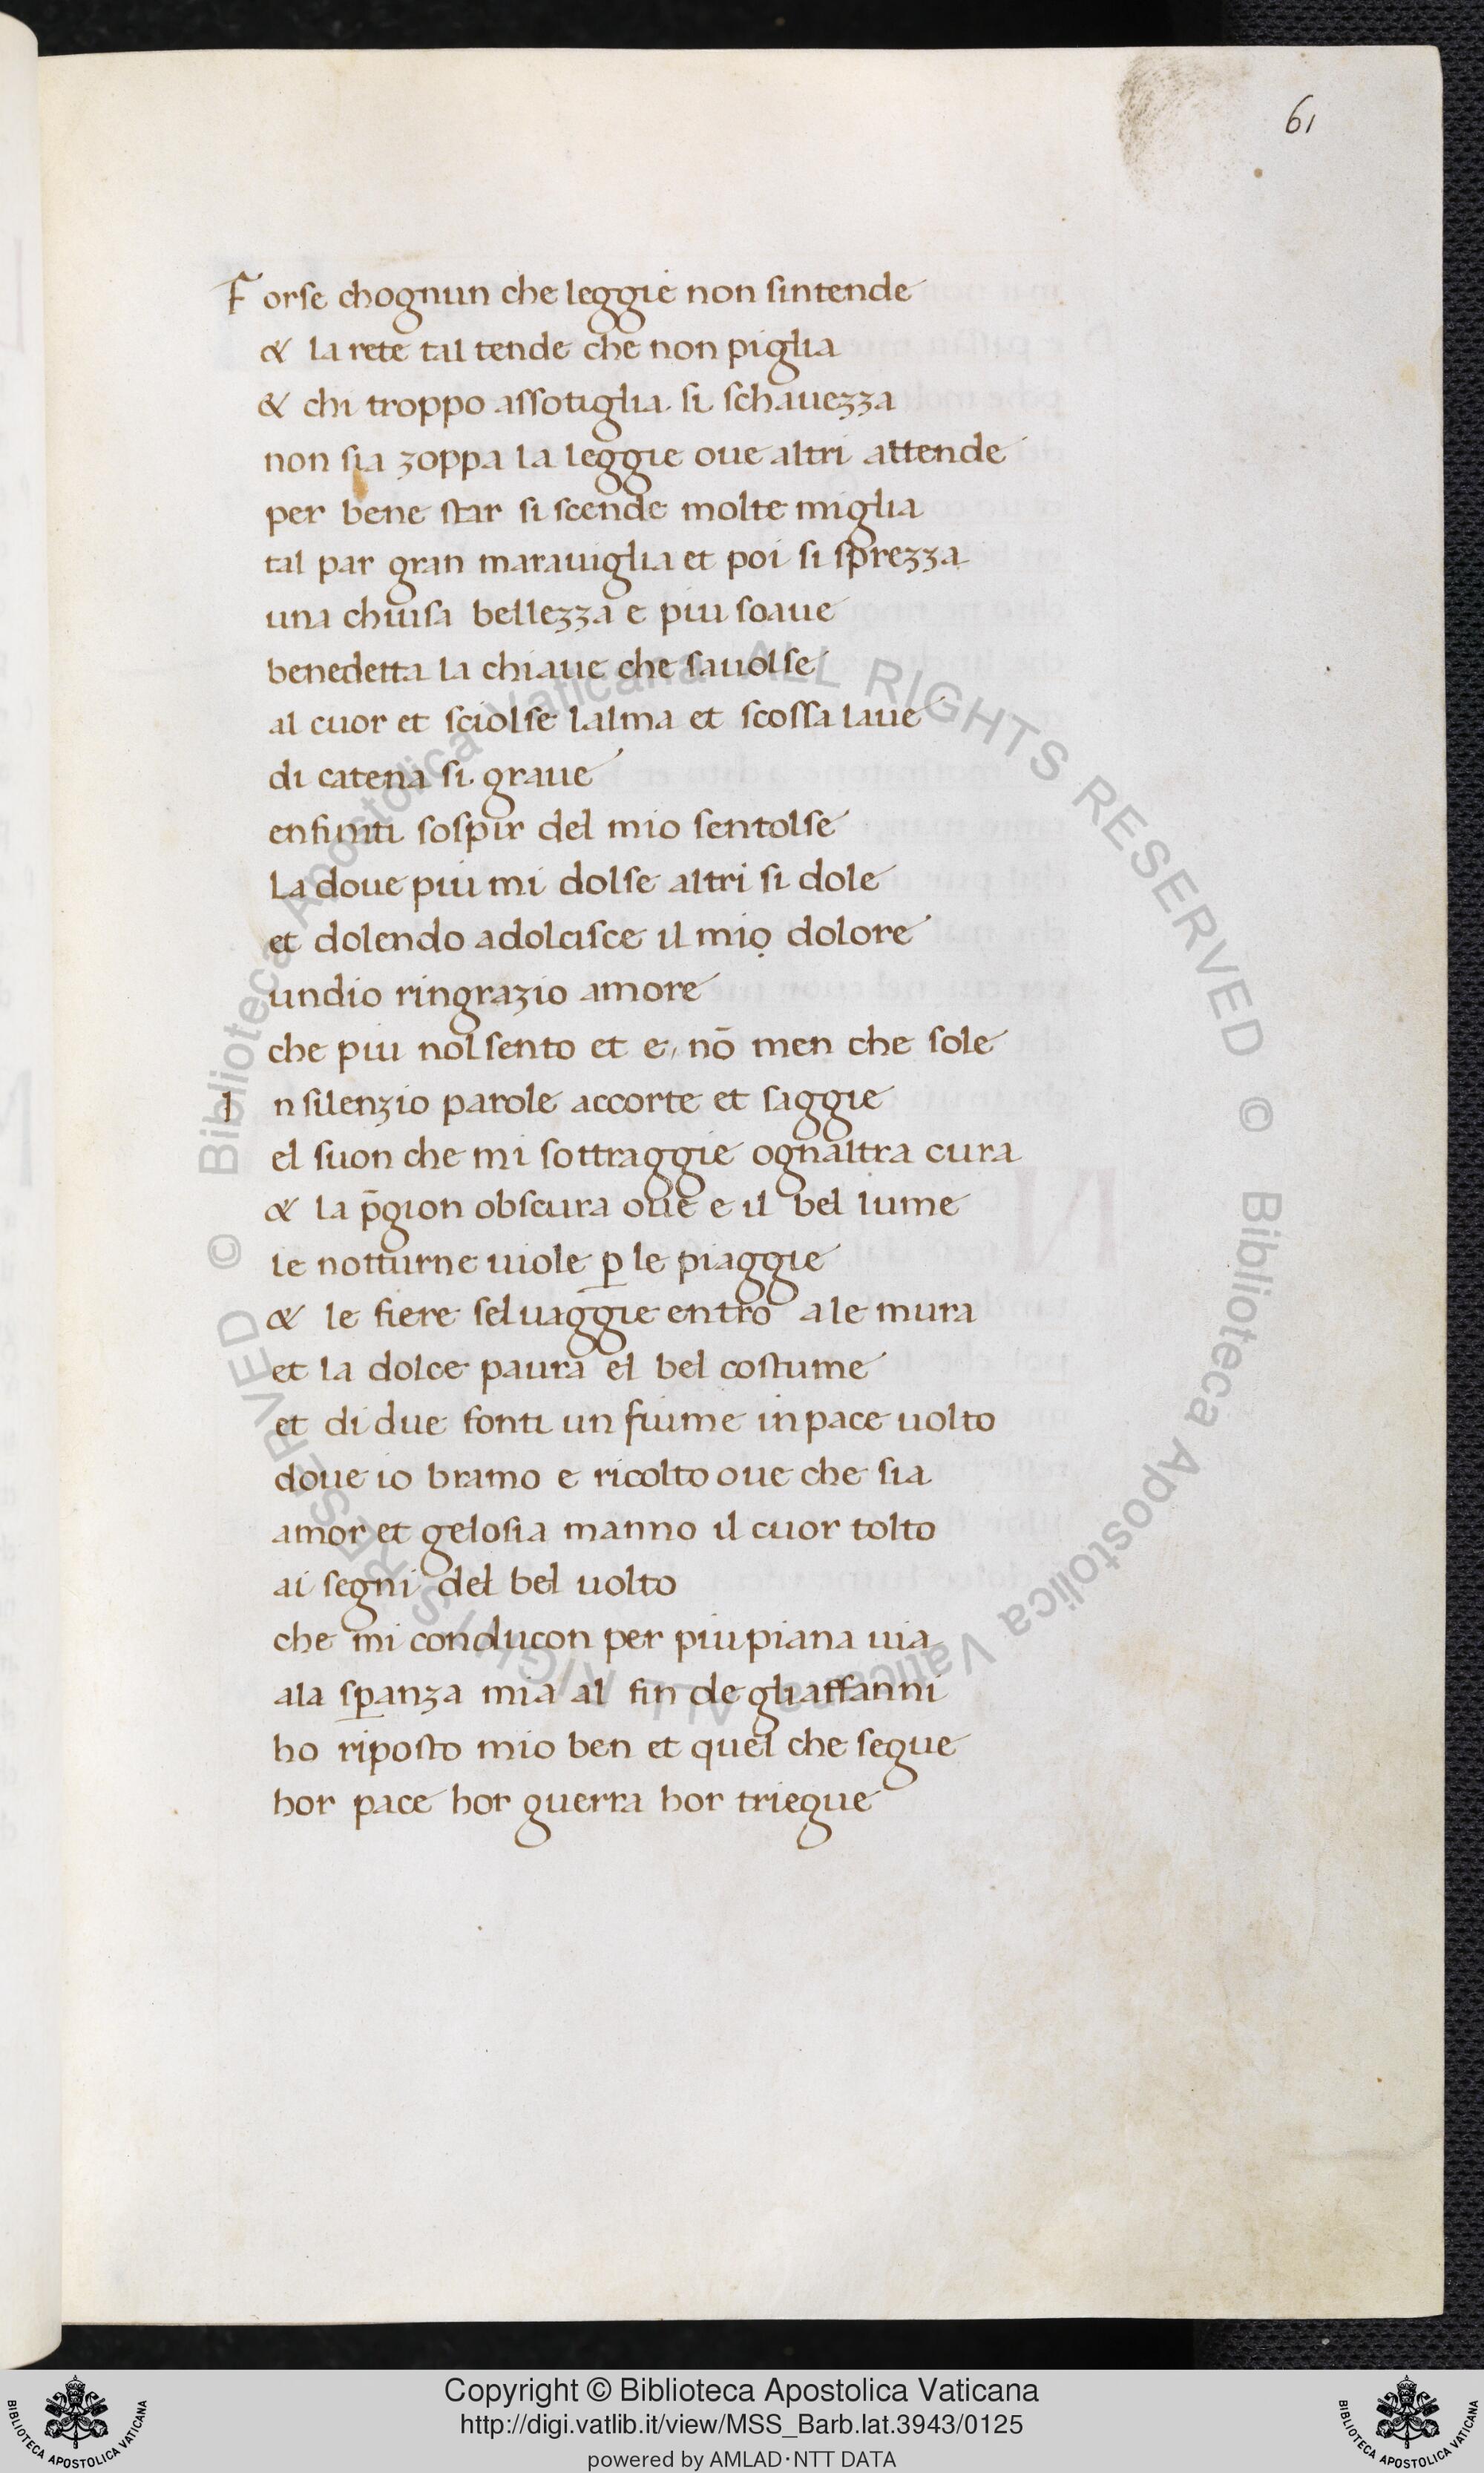 61
Forse chognun che leggie non sintende
& la rete tal tende che non piglia
& chi troppo assotiglia si schauezza
non sia zoppa la leggie oue altri attende
per bene star si scende molte miglia
tal par gran marauiglia et poi si sprezza
una chiusa bellezza e piu soaue
benedetta la chiaue che sauolse
al cuor et sciolse lalma et scossa laue
di catena si graue
enfiniti sospir del mio sentolse
La doue piu mi dolse altri si dole
et dolendo adolcisce il mio dolore
undio ringrazio amore
che piu nol sento et e, nō men che sole
In silenzio parole accorte et saggie
el suon che mi sottraggie ognaltra cura
& la p̄gion obscura oue e il bel lume
le notturne uiole ꝑ le piaggie
& le fiere seluaggie entro ale mura
et la dolce paura el bel costume
et di due fonti un fiume in pace uolto
doue io bramo e ricolto oue che sia
amor et gelosia manno il cuor tolto
ai segni del bel uolto
che mi conducon per piu piana uia
ala sꝑanza mia al fin de gliaffanni
ho riposto mio ben et quel che segue
hor pace hor guerra hor triegue
© Biblioteca Apostolica Vaticana ALL RIGHTS RESERVED © Biblioteca Apostolica Vaticana ALL RIGHTS RESERVED
Copyright © Biblioteca Apostolica Vaticana
http://digi.vatlib.it/view/MSS_Barb.lat.3943/0125
powered by AMLAD·NTT DATA
BIBLIOTECA APOSTOLICA VATICANA
BIBLIOTECA APOSTOLICA VATICANA